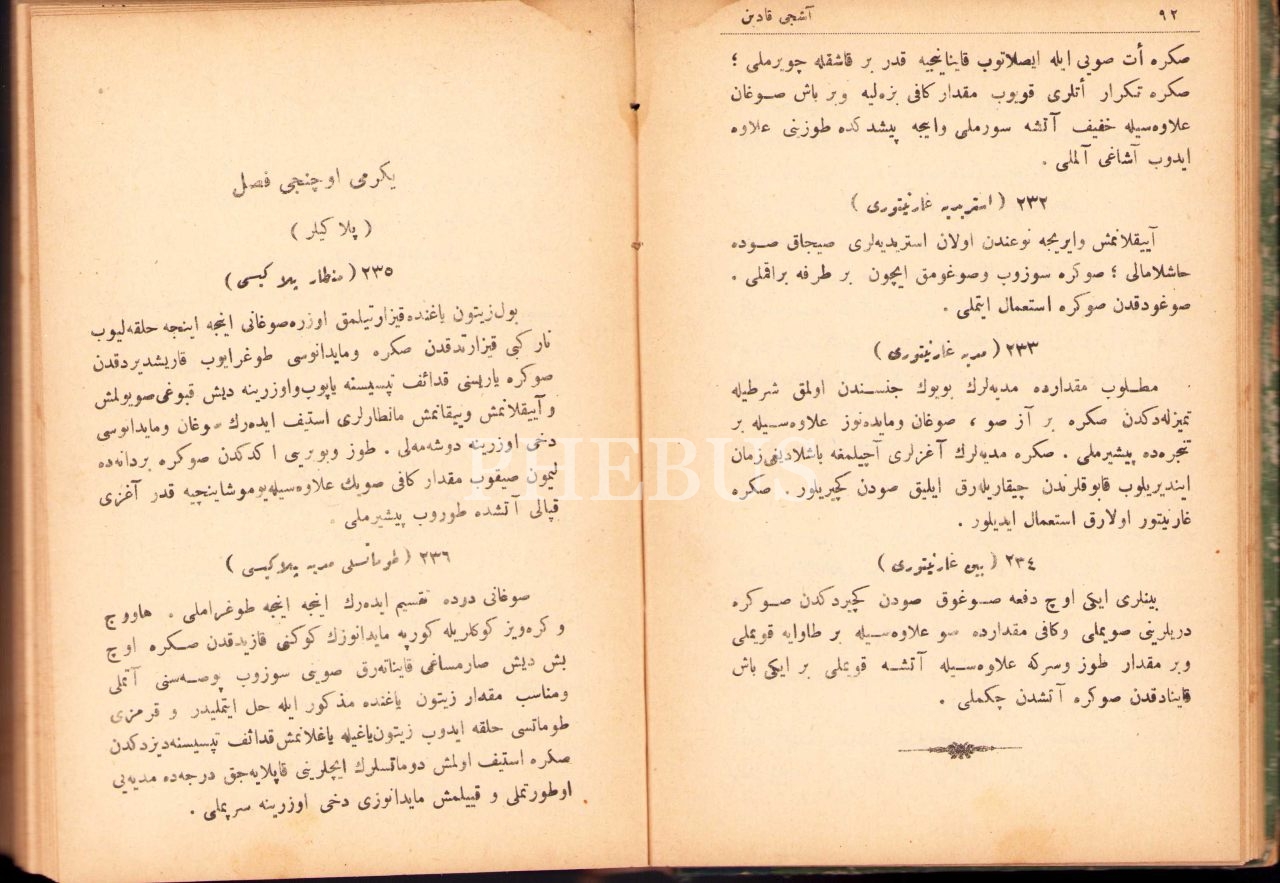 ٩٢
آشجی قادین
صکره أت صویی ایله ایصلاتوب قاینایجیه قدر بر قاشقله چویرملی ؛
صکره تکرار أتلری قویوب مقدار کافی بزه لیه وبر باش صـوغان
علاوه سیله خفیف آتشه سورملی وایجه پیشدکده طوزینی علاوه
ایدوب آشاغی آلملی .
٢٣٢ ( استریدیه غارنیتوری )
آییقلانمش وایریجه نوعندن اولان استریدیه لری صیجاق صـوده
حاشلامالی ؛ صوکره سوزوب وصوغومق ایچون بر طرفه براقملی .
صوغودقدن صوکره استعمال ایتملی .
٢٣٣ ( مدیه غارنیتوری )
مطـلوب مقدارده مدیه لرك بویوك جنسـندن اولمق شرطیله
تمیزله دکدن صکره بر آز صو ، صوغان ومایده نوز علاوه سـیله بر
تنجره ده پیشیرملی . صکره مدیه لرك آغزلری آچیلمغه باشلادیغی زمان
ایندیریلوب قابوقلرندن چیقاریله رق ایلیق صودن کچیریلور . صکره
غارنیتور اولارق استعمال ایدیلور .
٢٣٤ ( بین غارنیتوری )
بینلری ایکی اوچ دفعه صـوغوق صودن کچیردکدن صـوکره
دریلرینی صویملی وکافی مقدارده صو علاوه سـیله بر طاوایه قویملی
وبر مقدار طوز وسرکه علاوه سـیله آتشـه قویملی بر ایکی باش
قاینادقدن صوکره آتشدن چکملی .
یکرمی اوچنجی فصل
( پلاکیلر )
٢٣٥ ( منطار پلاکیسی )
بول زیتون یاغنده قیزارتیلمق اوزره صوغانی اینجه اینجه حلقه لیوب
نار کبی قیزارتدقدن صکره ومایدانوسی طوغرایوب قاریشدیردقدن
صوکره یاریسنی قدائف تپسیسنه یایوب واوزرینه دیش قبوغی صویولمش
و آییقلانمش وییقانمش مانطارلری استیف ایده رك صوغان ومایدانوسی
دخی اوزرینه دوشه مه لی . طوز وبوبریی اکدکدن صوکره بردانه ده
لیمون صیقوب مقدار کافی صویك علاوه سیله یوموشاینجیه قدر آغزی
قپالی آتشده طوروب پیشیرملی .
٢٣٦ ( طوماتسلی مدیه پلاکیسی )
صوغانی درده تقسیم ایده رك اینجه اینجه طوغراملی . هاووچ
و کره ویز کوکلریله کورپه مایدانوزك کوکنی قازیدقدن صـکره اوچ
بش دیش صارمساغی قایناته رق صوینی سوزوب پوصـه سنی آتملی
ومناسب مقدار زیتون یاغنده مذکور ایله حل ایتملیدر و قرمزی
طوماتسی حلقه ایدوب زیتون یاغیله یاغلانمش قدائف تپسیسنه دیزدکدن
صکره استیف اولمش دوماتسلرك ایچلرینی قاپلایه جق درجه ده مدیه یی
اوطورتملی و قییلمش مایدانوزی دخی اوزرینه سرپملی .
PHEBUS